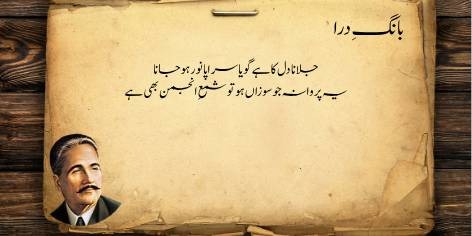 بانگِ درا
جلانا دل کا ہے گویا سراپا نور ہو جانا
یہ پروانہ جو سوزاں ہو تو شمعِ انجمن بھی ہے